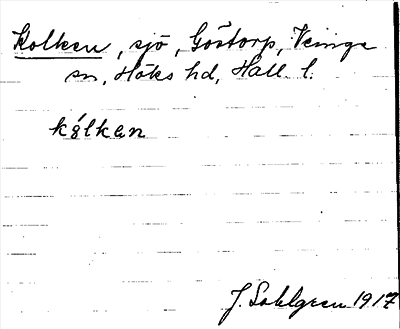 Kolken, sjö, Göstorp, Veinge
sn, Höks hd, Hall. l.
kålken
J. Sahlgren 1917